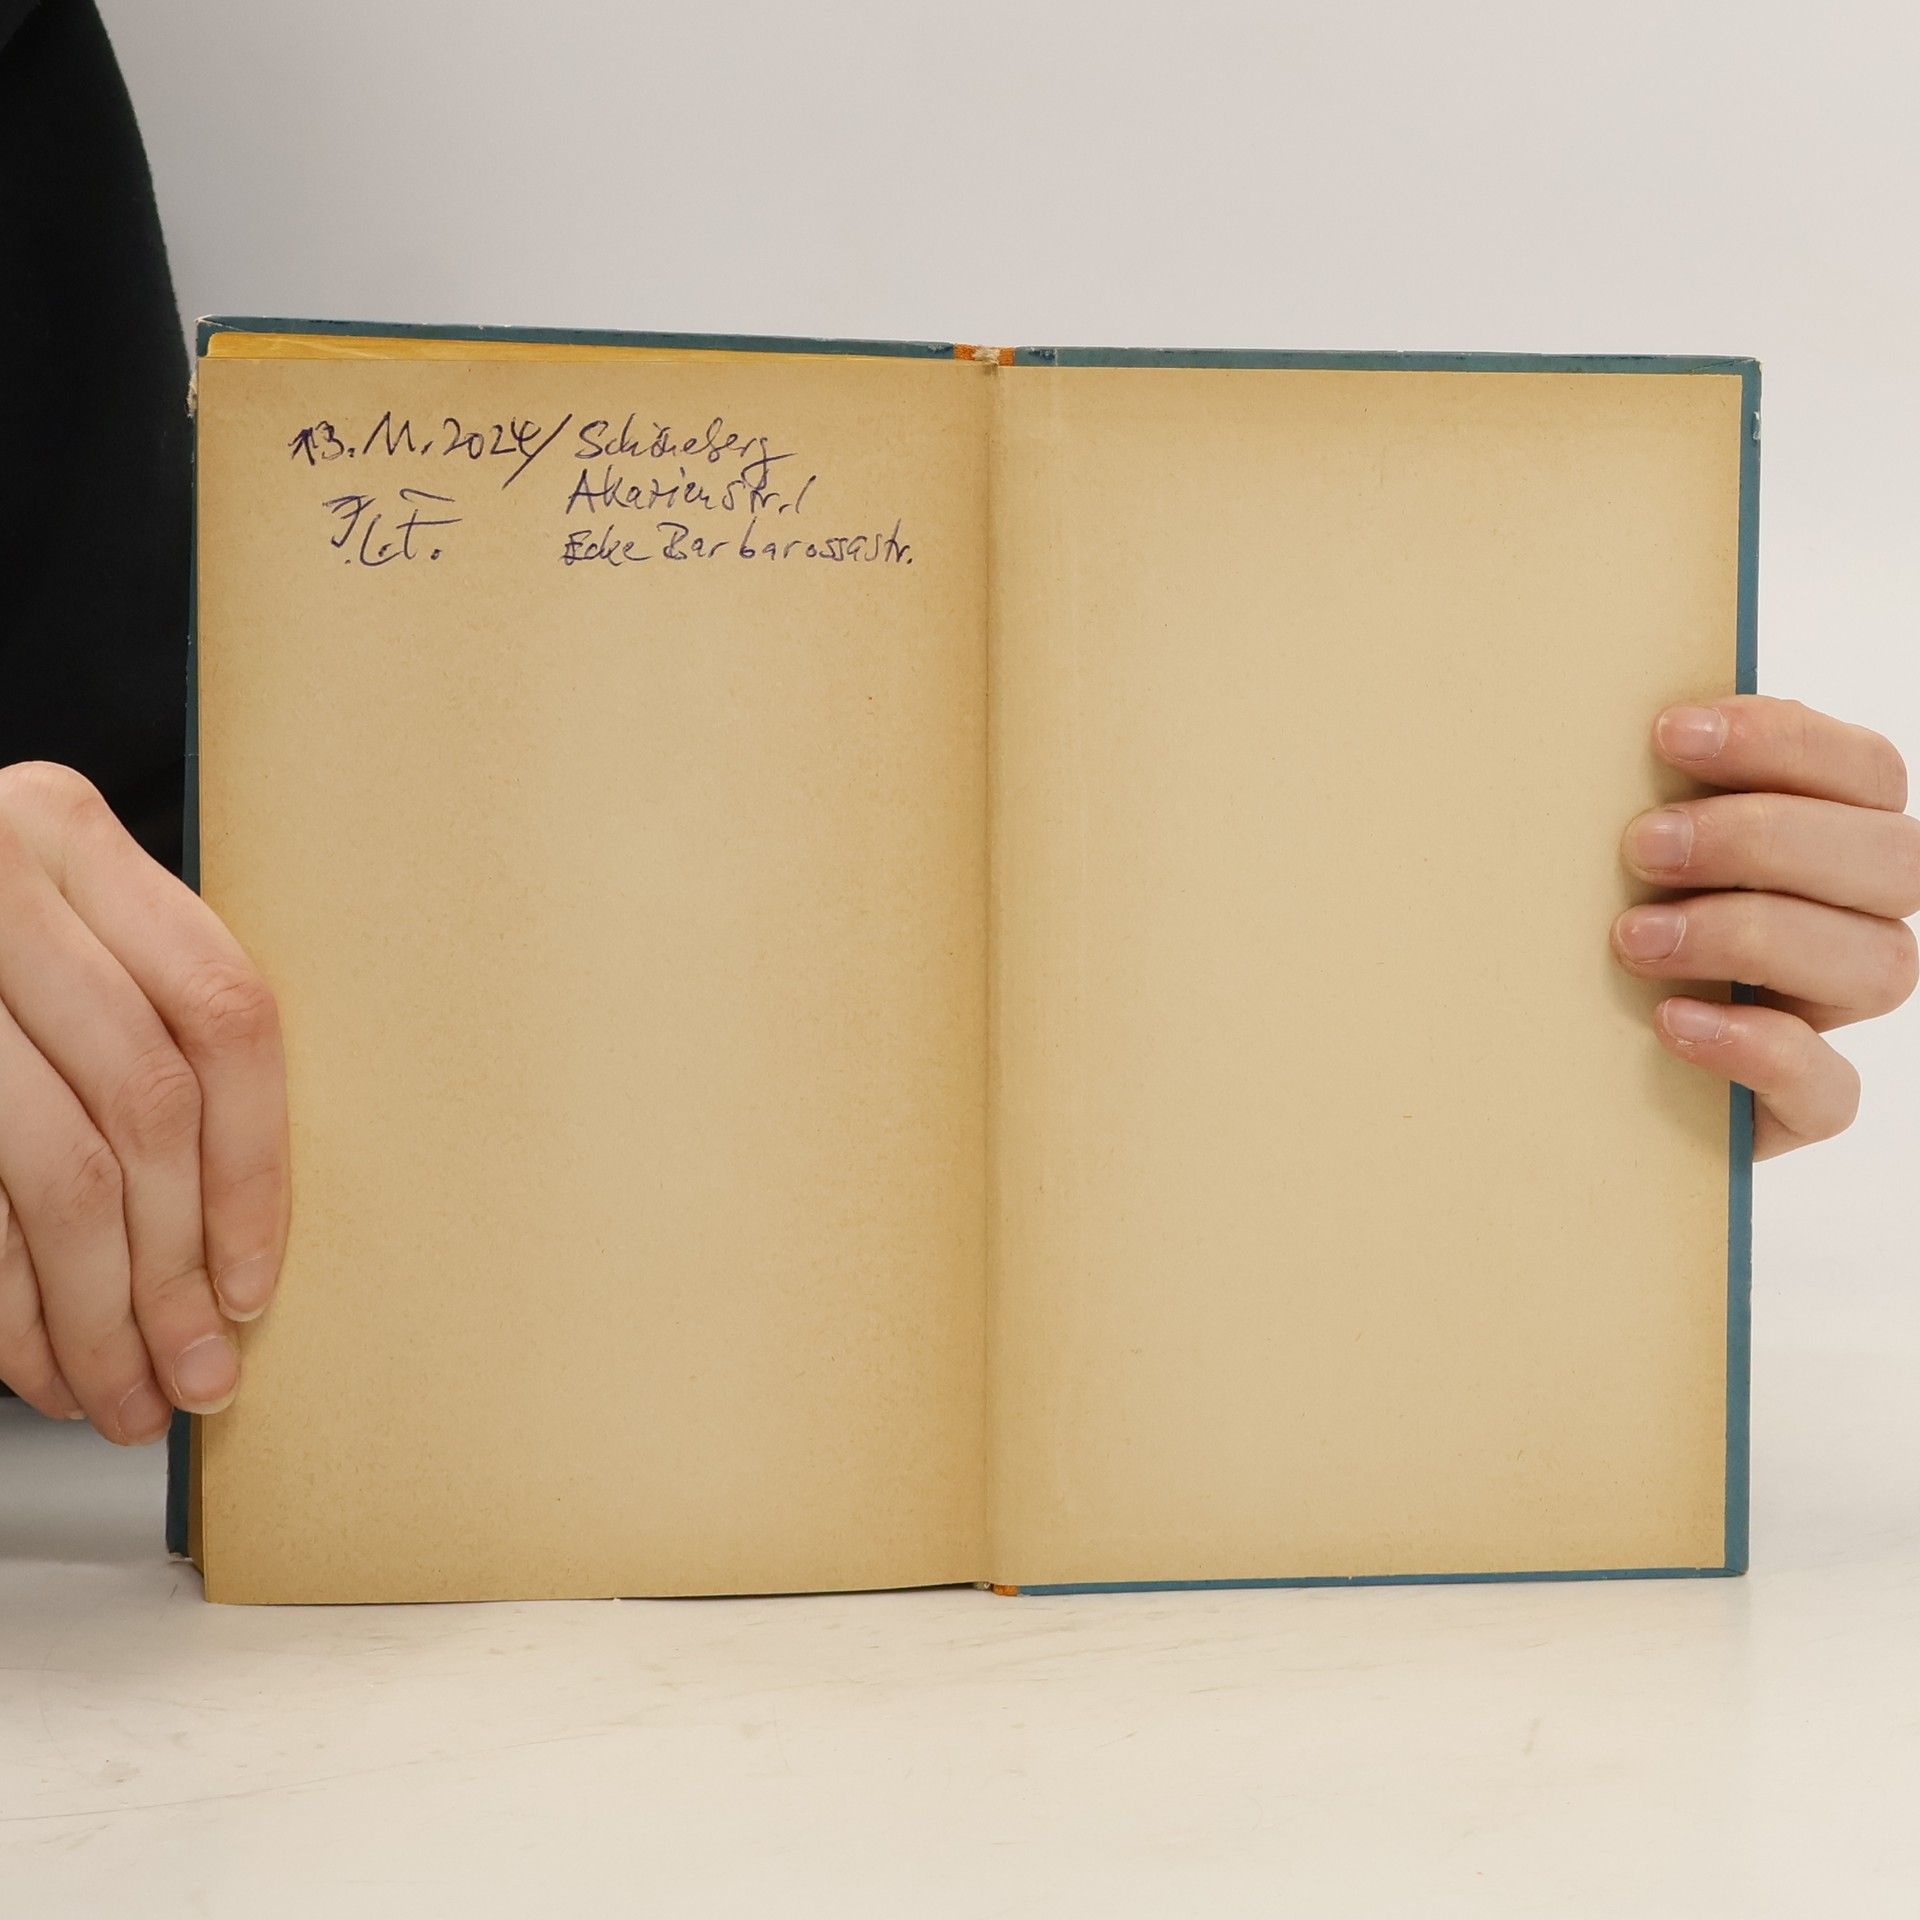 13. 11. 2024 / Schöneberg
Akazienstr. /
Ecke Barbarossastr.